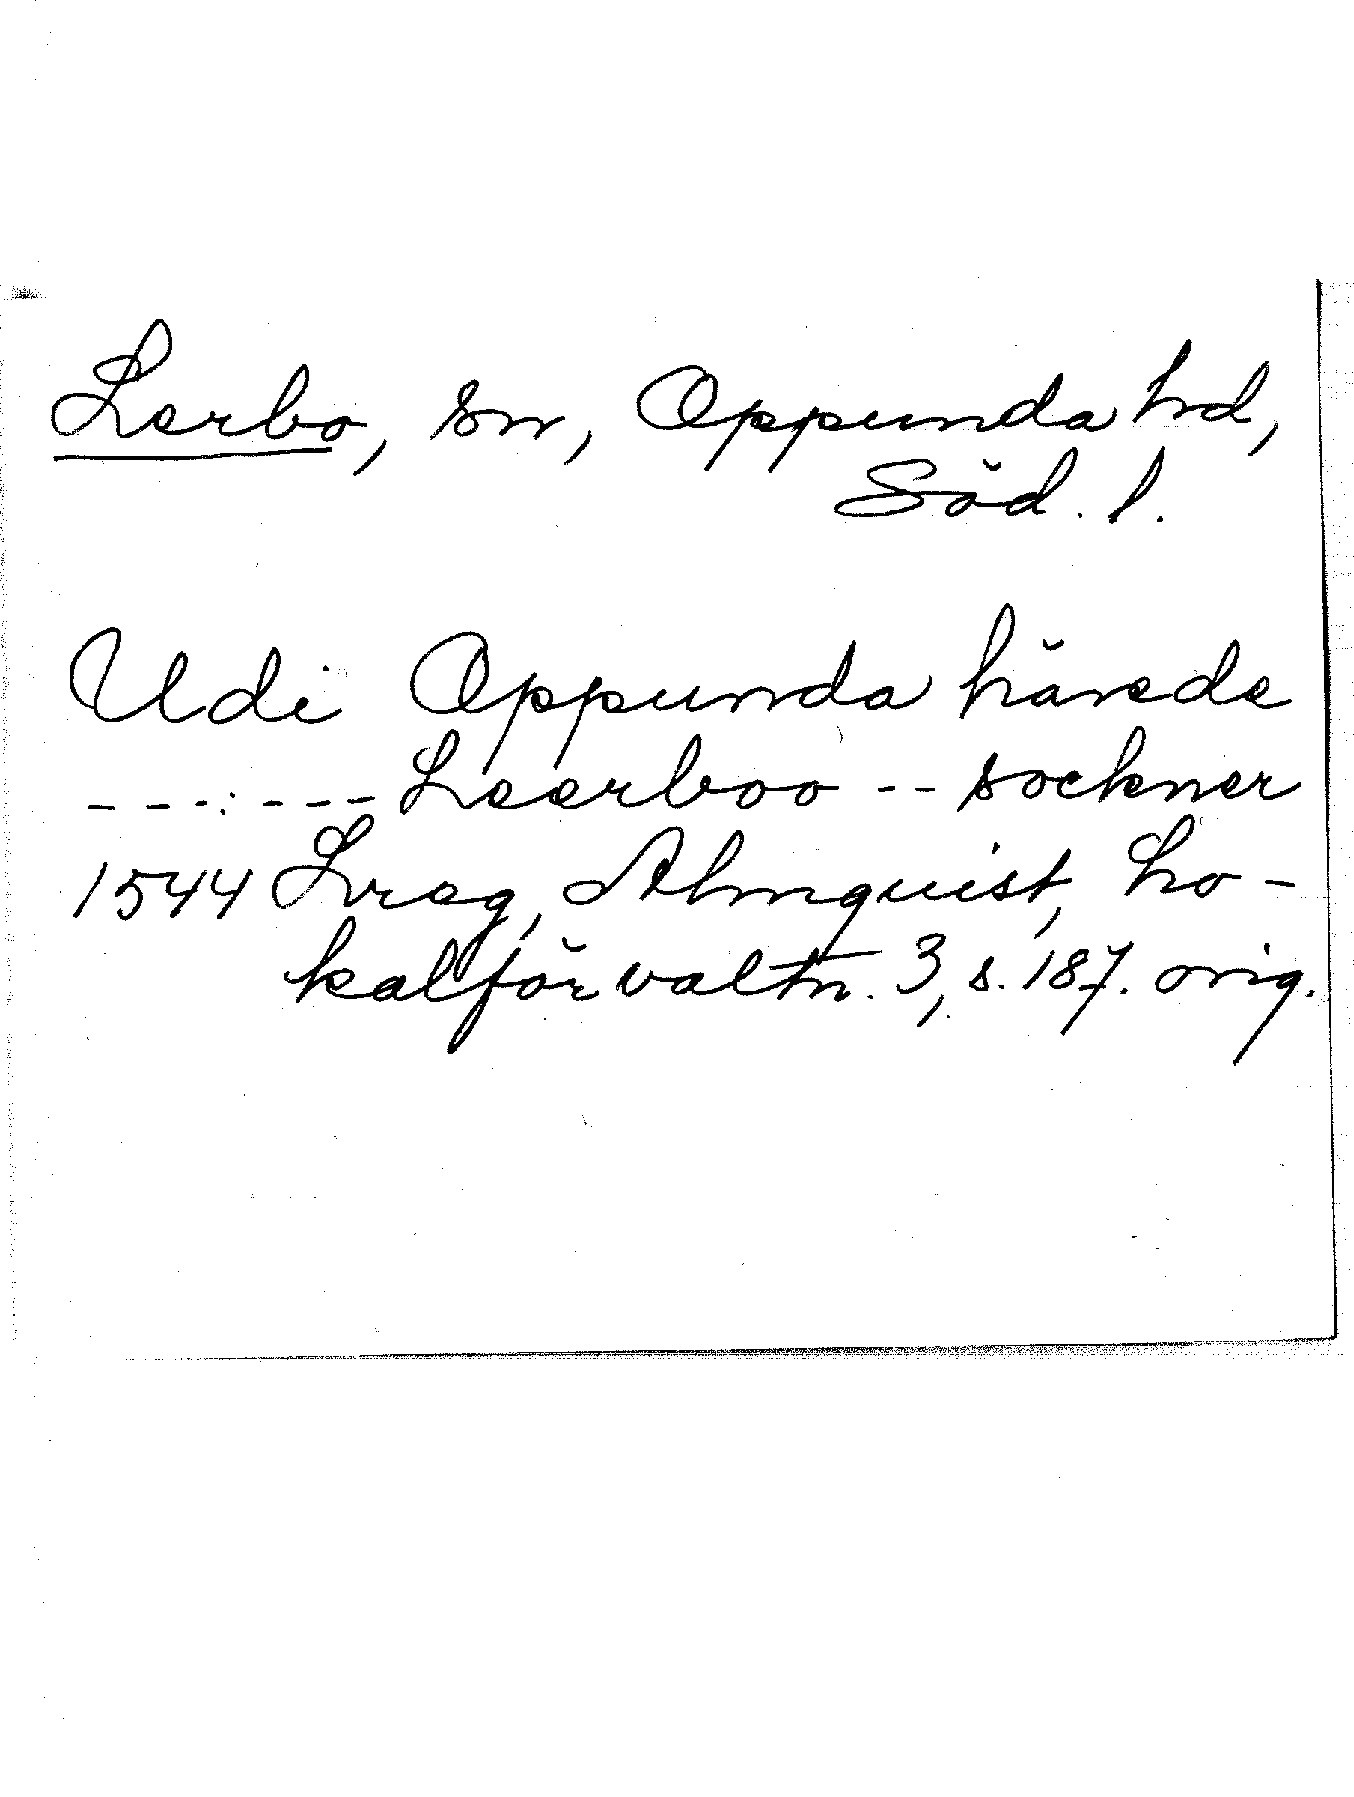 Lerbo, sn, Oppunda hd,
Söd. l.
Udi Oppunda härede
- - - : - - - Leerboo - - sockner
1544 Lreg, Almquist, Lo-
kalförvaltn. 3, s. 187. orig.